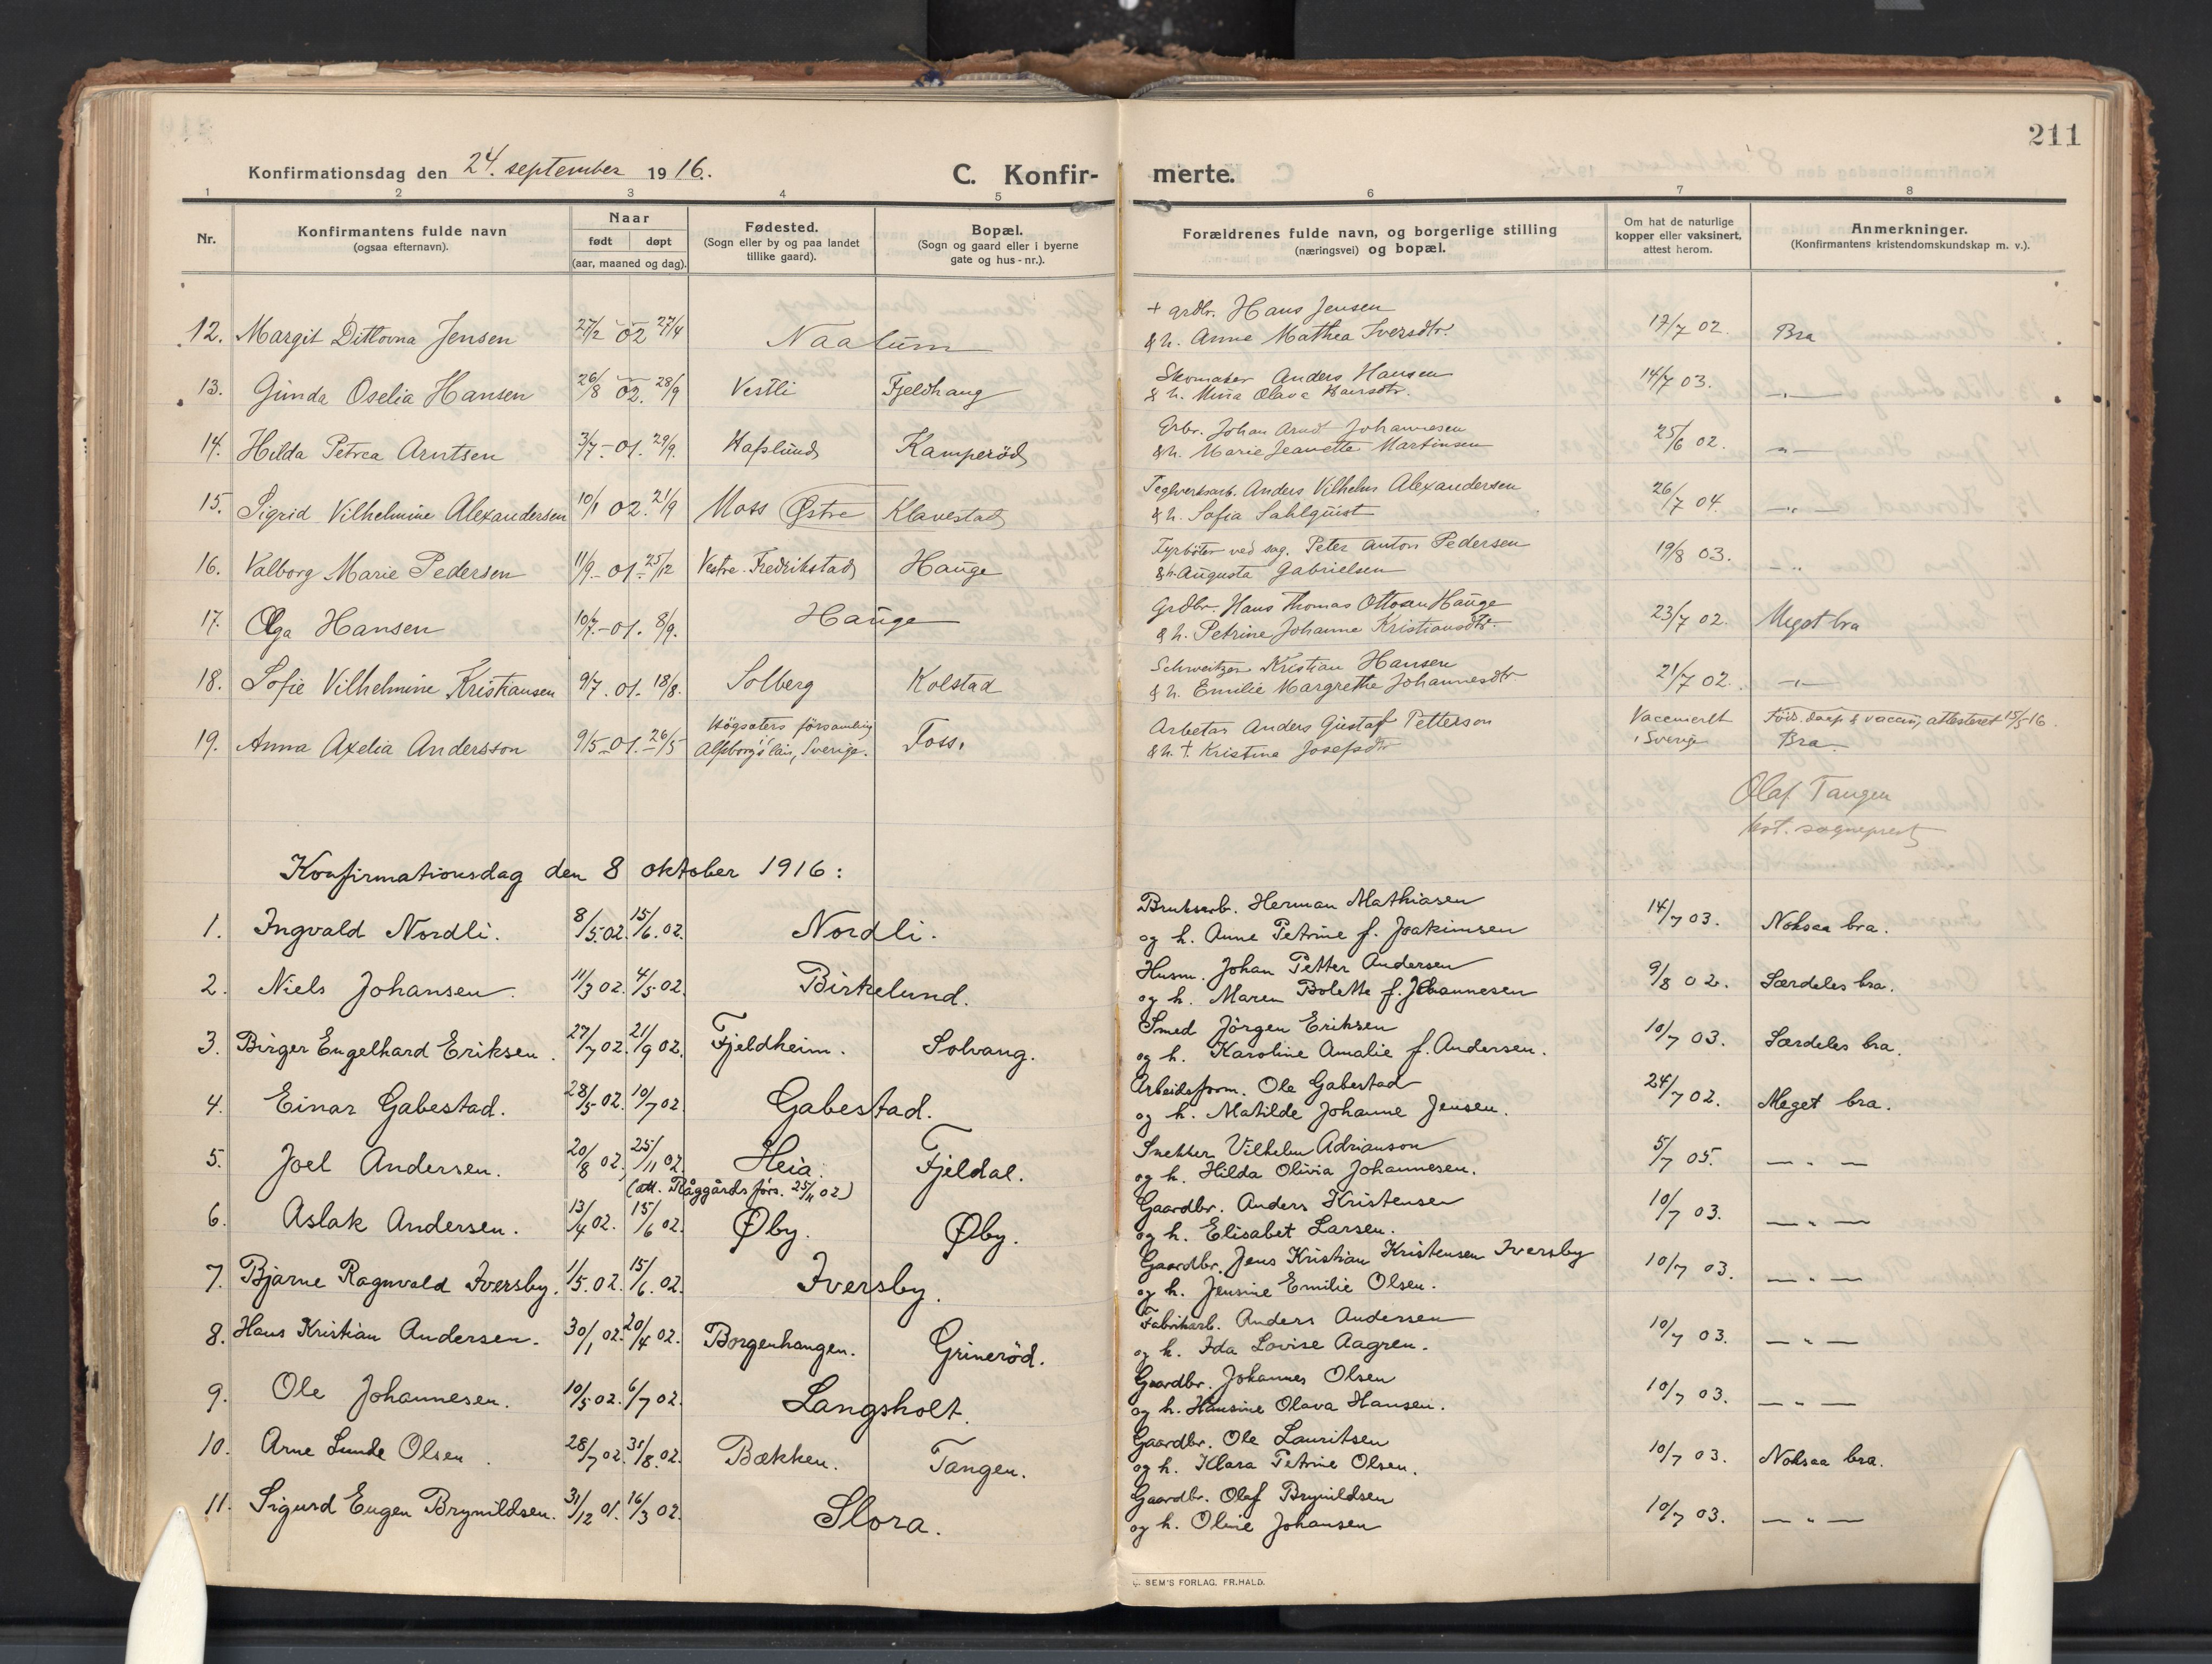 211
Konfirmationsdag den 24. september 1916.
C. Konfir-merte.
1 2 3 4 5 6 7 8
Nr.
Konfirmantens fulde navn
(ogsaa efternavn).
Naar
født døpt
(aar, maaned og dag).
Fødested.
(Sogn eller by og paa landet
tillike gaard).
Bopæl.
(Sogn og gaard eller i byerne
gate og hus-nr.).
Forældrenes fulde navn, og borgerlige stilling
(næringsvei) og bopæl.
Om hat de naturlige
kopper eller vaksinert,
attest herom.
Anmerkninger.
(Konfirmantens kristendomskundskap m. v.).
12. Margit Dittovna Jensen 27/2 02 27/4 Naalum + grdbr. Hans Jensen 17/7 02. Bra
& h. Anne Mathea Iversdtr.
13. Gunda Oselia Hansen 26/8 02. 28/9 Vestli Fjeldhaug Skomaker Anders Hansen 14/7 03. -"-
& h. Mina Olava Hansdtr.
14. Hilda Petrea Arntsen 3/7-01. 29/9. Hafslund Kamperød Johan Arnt Johannesen 25/6 02. -"-
& h. Marie Jeanette Martinsen
15. Sigrid Vilhelmine Alexandersen 10/1 02. 21/9 Moss Østre Klavestad Teglverksarb. Anders Vilhelm Alexandersen 26/7 04. -"-
& h. Sofia Sahlquist
16. Valborg Marie Pedersen 11/9-01-25/12 Vestre Fredrikstad Hauge Fyrbøter ved sag. Peter Anton Pedersen 19/8 03. -"-
& h. Augusta Gabrielsen
17. Olga Hansen 10/7-01. 8/9. Hauge Grdbr. Hans Thomas Ottosen Hauge 23/7 02. Meget bra
& h. Petrine Johanne Kristiansdtr.
18. Sofie Vilhelmine Kristiansen 9/7.01-18/8. Solberg Kolstad Schweitzer Kristian Hansen 21/7 02. -"-
& h. Emilie Margrethe Johannesdtr.
19. Anna Axelia Andersson 9/5-01-26/5 Högsäters församling Alfsborgs län, Sverige. Foss. Arbetar Anders Gustaf Petterson Vaccinerlt i Sverige Föds. daap & vaccin, attesteret 15/5-16.
& h. † Kristina Josefsdtr Bra.
Olaf Tangen
kst. sogneprest
Konfirmationsdag den 8 oktober 1916:
1. Ingvald Nordli. 8/5.02. 15/6.02. Nordli. Bruksarb. Herman Mathiasen 14/7 03. Noksaa bra.
og h. Anne Petrine f. Joakimsen
2. Niels Johansen. 11/3 02. 4/5 02. Birkelund. Husm. Johan Petter Andersen 9/8 02. Særdeles bra.
og h. Maren Bolette f. Johannesen
3. Birger Engelhard Eriksen. 27/7 02. 21/9 02. Fjeldheim. Solvang. Smed Jörgen Eriksen 10/7 03. Særdeles bra.
og h. Karoline Amalie f. Andersen.
4. Einar Gabestad. 28/5 02. 10/7 02. Gabestad. Arbeidsform. Ole Gabestad 24/7 02. Meget bra.
og h. Matilde Johanne Jensen.
5. Joel Andersen. 20/8 02. 25/11 02. Heia. Fjeldal. Snekker Vilhelm Adrianson 5/7 05. -"-
(att. Råggärds förs. 25/11 02) og h. Hilda Olivia Johannesen.
6. Aslak Andersen. 13/4 02. 15/6 02. Øby. Øby. Gaardbr. Anders Kristensen 10/7 03. -"-
og h. Elisabet Larsen.
7. Bjarne Ragnvald Iversby. 1/5.02. 15/6.02. Iversby. Gaardbr. Jens Kristian Kristensen Iversby 10/7 03. -"-
og h. Jensine Emilie Olsen.
8. Hans Kristian Andersen. 30/1 02. 20/4 02. Borgenhaugen. Grinerød. Fabrikarb. Anders Andersen 10/7 03. -"-
og h. Ida Lovise Aagren.
9. Ole Johannesen. 10/5 02. 6/7 02. Langsholt. Gaardbr. Johannes Olsen 10/7 03. -"-
og h. Hansine Olava Hansen.
10. Arne Lunde Olsen. 28/7 02. 31/8.02. Bækken. Tangen. Gaardbr. Ole Lauritsen 10/7 03. Noksaa bra.
og h. Klara Petrine Olsen.
11. Sigurd Eugen Brynildsen. 31/12 01. 16/3 02. Slora. Gaardbr. Olaf Brynildsen 10/7 03. -"-
og h. Oline Johansen
SEM'S FORLAG. FR. HALD.